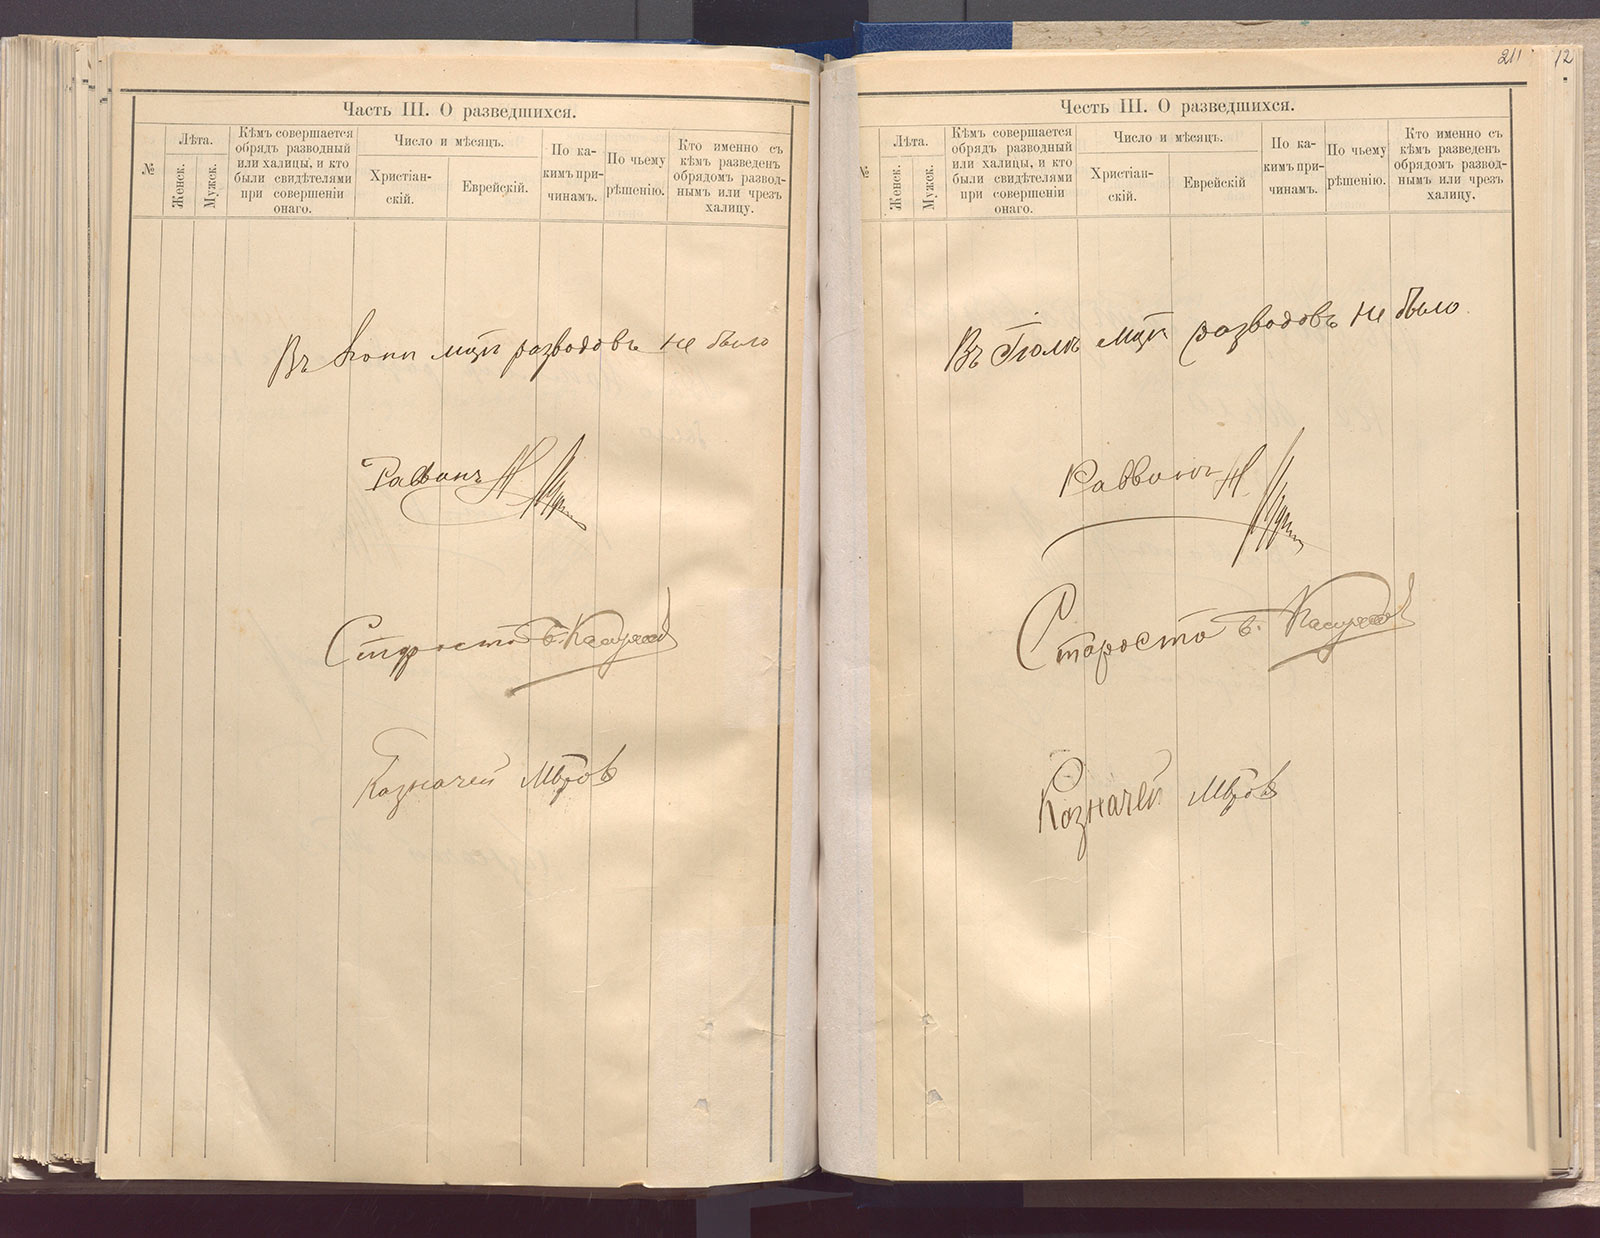 Часть III. О разведшихся.
№
Лѣта.
Женск.
Мужск.
Кѣмъ совершается
обрядъ разводный
или халицы, и кто
были свидѣтелями
при совершеніи
онаго.
Число и мѣсяцъ.
Христіан-
скій.
Еврейскій.
По ка-
кимъ при-
чинамъ.
По чьему
рѣшенію.
Кто именно съ
кѣмъ разведенъ
обрядомъ развод-
нымъ или чрезъ
халицу.
Въ Іюнѣ мцѣ разводовъ не было
Раввинъ
Староста
Казначей
211
12
Честь III. О разведшихся.
№
Лѣта.
Женск.
Мужск.
Кѣмъ совершается
обрядъ разводный
или халицы, и кто
были свидѣтелями
при совершеніи
онаго.
Число и мѣсяцъ.
Христіан-
скій.
Еврейскій
По ка-
кимъ при-
чинамъ.
По чьему
рѣшенію.
Кто именно съ
кѣмъ разведенъ
обрядомъ развод-
нымъ или чрезъ
халицу.
Въ Іюлѣ мцѣ разводовъ не было.
Раввинъ
Староста
Казначей